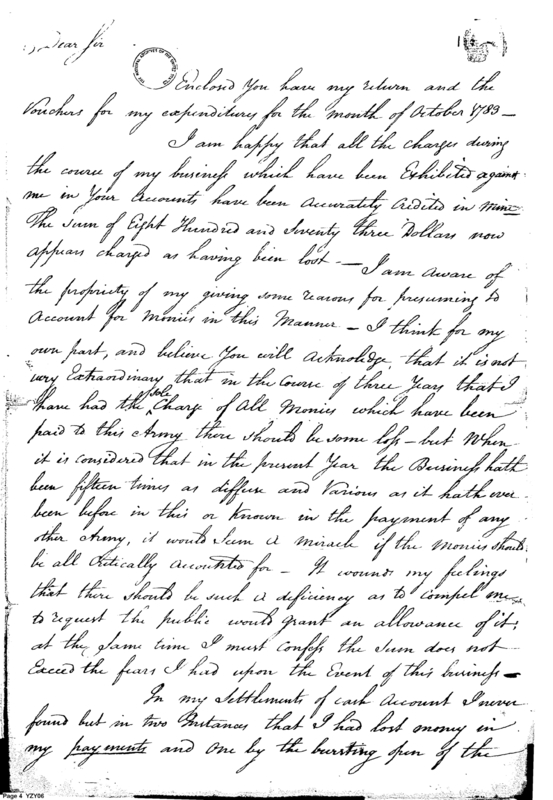 Dear Sir
Enclosed You have my return and the
Vouchers for my expenditures for the month of October 1783 —
I am happy that all the charges during
the course of my business which have been Exhibited against
me in Your Accounts have been accurately Credited in mine
The Sum of Eight Hundred and Seventy three Dollars now
appears charged as having been lost. — I am aware of
the propriety of my giving some reasons for presuming to
Account for Monies in this Manner — I think for my
own part, and believe You will acknolidge that it is not
very Extraordinary that in the Course of three Years that I
have had the sole Charge of All Monies which have been
paid to this Army there should be some loss — but When
it is considered that in the present Year the Business hath
been fifteen times as diffuse and Various as it hath ever
been before in this or Known in the payment of any
other Army, it would seem a miracle if the monies should
be all Critically accounted for — It wounds my feelings
that there should be such a deficiency as to compel me
to request the public would grant an allowance of it;
at the same time I must confess the Sum does not
Exceed the fears I had upon the Event of this business —
In my Settlements of cash Account I never
found but in two Instances that I had lost money in
my payments and one by the bursting open of the
Page 4 YZY06